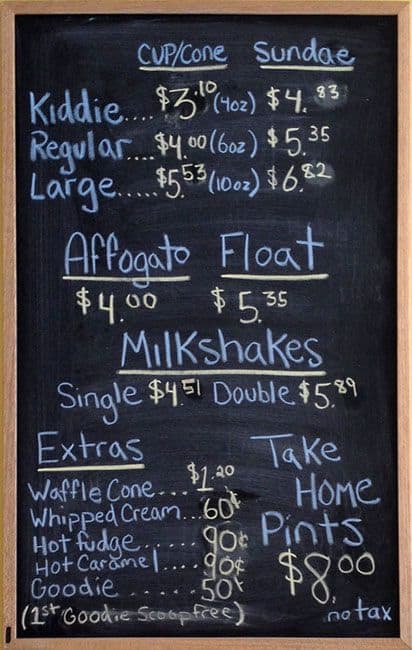 Cup/Cone Sundae
Kiddie.... $3.10 (4oz) $4.83
Regular.... $4.00 (6oz) $5.35
Large..... $5.53 (10oz) $6.82
Affogato Float
$4.00 $5.35
Milkshakes
Single $4.51 Double $5.89
Extras
Waffle Cone.... $1.20
Whipped Cream... 60¢
Hot fudge...... 90¢
Hot Caramel.... 90¢
Goodie ...... 50¢
(1st Goodie Scoop free)
Take
Home
Pints
$8.00
no tax